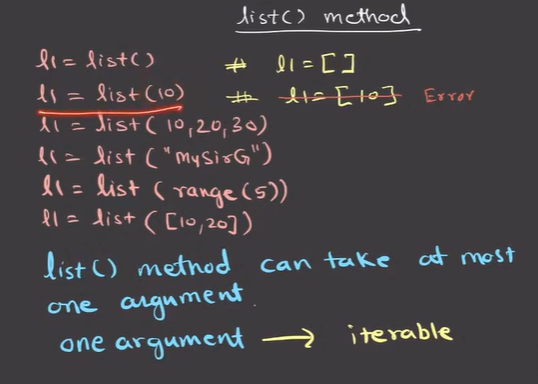 list() method
l1 = list() # l1 = [ ]
l1 = list(10) # l1 = [10] Error
l1 = list( 10, 20, 30)
l1 = list ("MySirG")
l1 = list ( range(5))
l1 = list ([10,20])
list() method can take at most
one argument.
one argument → iterable